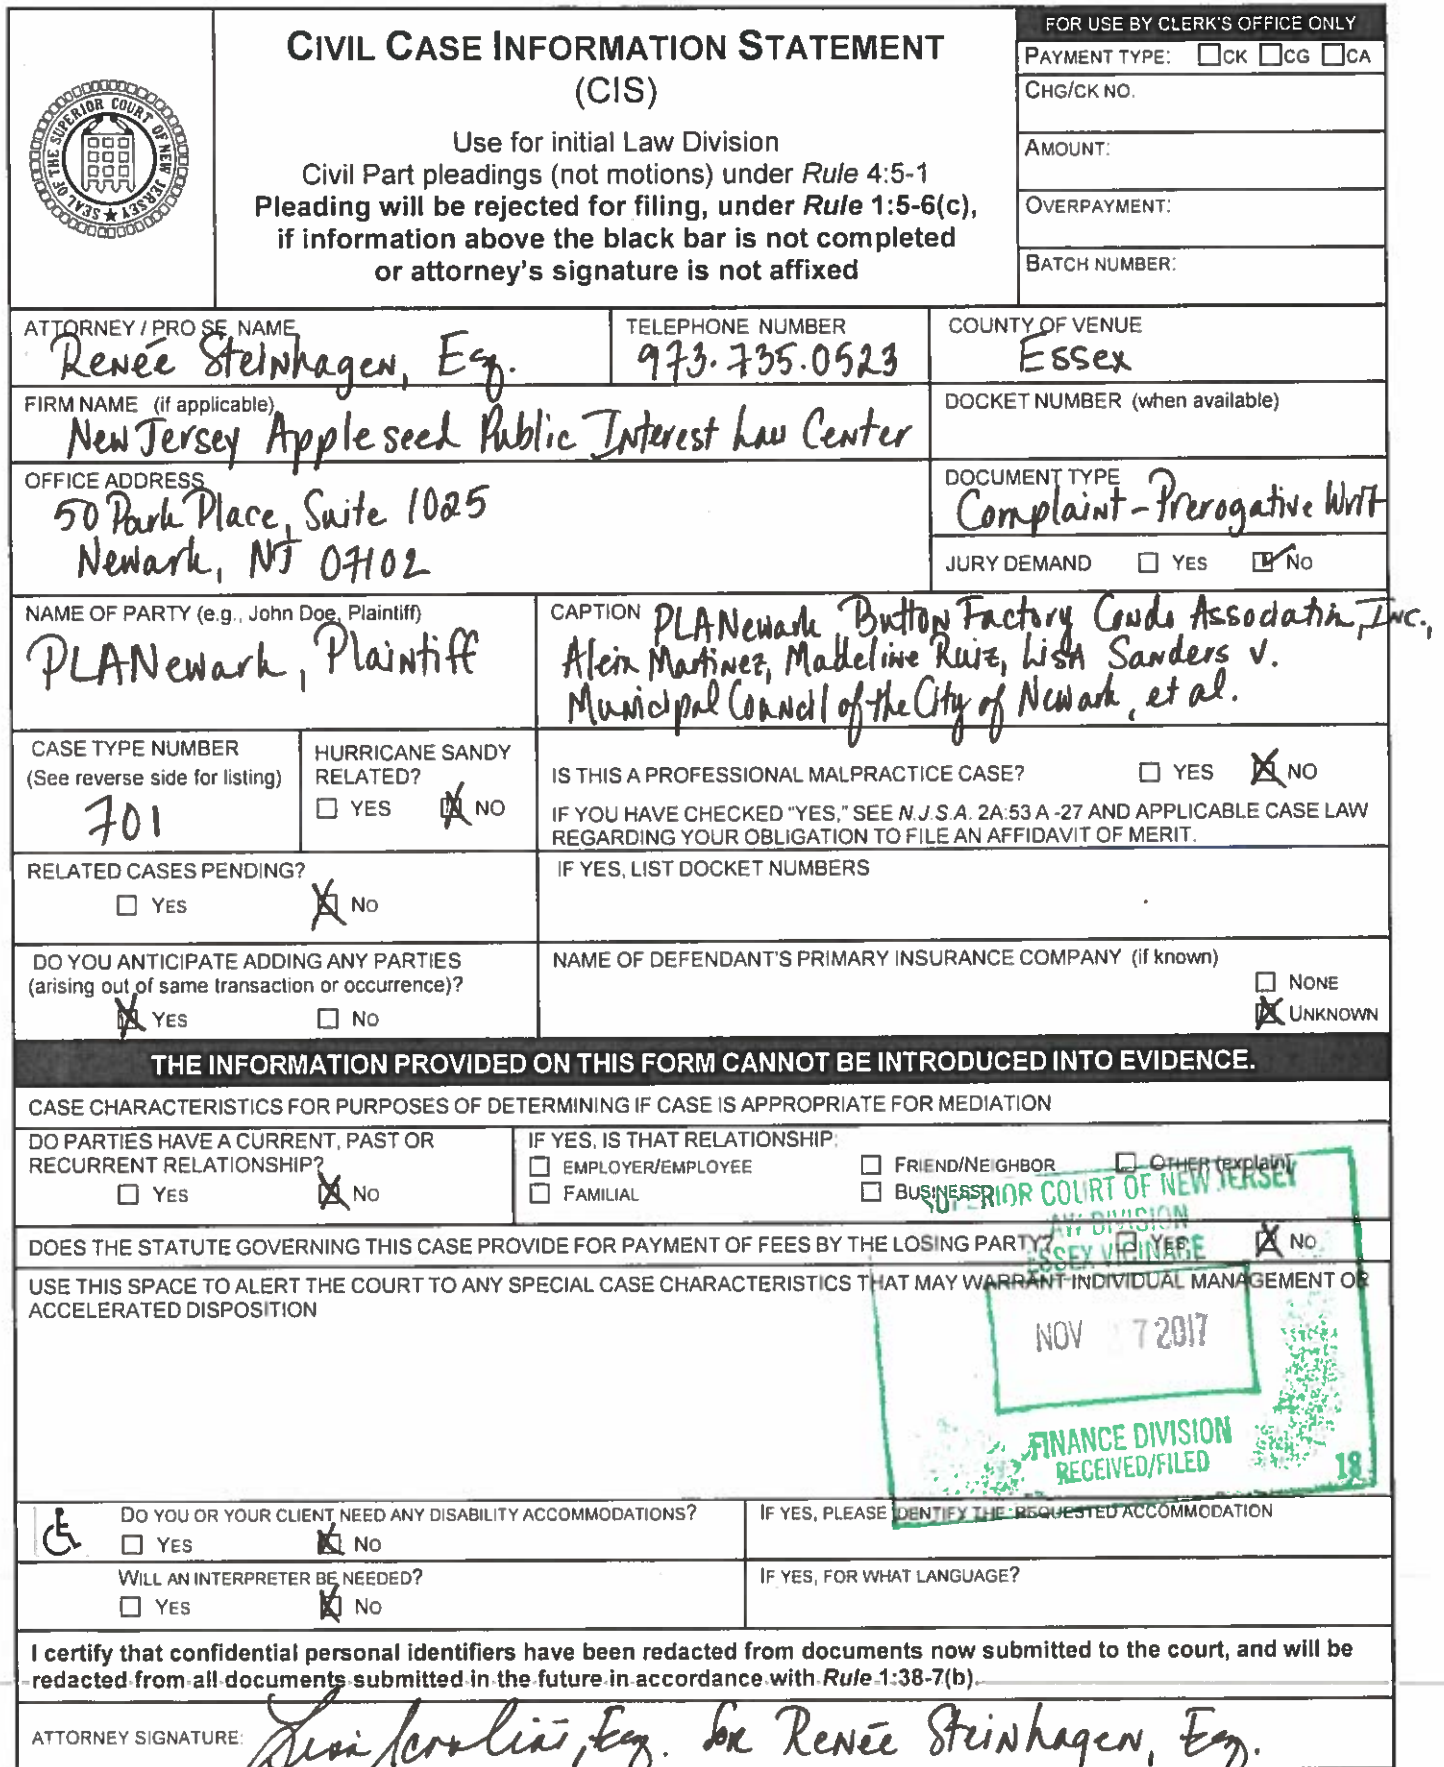 SEAL OF THE SUPERIOR COURT OF NEW JERSEY
CIVIL CASE INFORMATION STATEMENT
(CIS)
Use for initial Law Division
Civil Part pleadings (not motions) under Rule 4:5-1
Pleading will be rejected for filing, under Rule 1:5-6(c),
if information above the black bar is not completed
or attorney's signature is not affixed
FOR USE BY CLERK'S OFFICE ONLY
PAYMENT TYPE: CK CG CA
CHG/CK NO.
AMOUNT:
OVERPAYMENT:
BATCH NUMBER:
ATTORNEY / PRO SE NAME
Renée Steinhagen, Esq.
TELEPHONE NUMBER
973.735.0523
COUNTY OF VENUE
Essex
FIRM NAME (if applicable)
New Jersey Appleseed Public Interest Law Center
DOCKET NUMBER (when available)
OFFICE ADDRESS
50 Park Place, Suite 1025
Newark, NJ 07102
DOCUMENT TYPE
Complaint - Prerogative Writ
JURY DEMAND YES NO
NAME OF PARTY (e.g., John Doe, Plaintiff)
PLANewark, Plaintiff
CAPTION PLANewark, Button Factory Condo Association, Inc.,
Martinez, Madeline Ruiz, Lisa Sanders v.
Municipal Council of the City of Newark, et al.
CASE TYPE NUMBER
(See reverse side for listing)
701
HURRICANE SANDY
RELATED?
YES NO
IS THIS A PROFESSIONAL MALPRACTICE CASE? YES NO
IF YOU HAVE CHECKED "YES," SEE N.J.S.A. 2A:53 A -27 AND APPLICABLE CASE LAW
REGARDING YOUR OBLIGATION TO FILE AN AFFIDAVIT OF MERIT.
RELATED CASES PENDING?
YES NO
IF YES, LIST DOCKET NUMBERS
DO YOU ANTICIPATE ADDING ANY PARTIES
(arising out of same transaction or occurrence)?
YES NO
NAME OF DEFENDANT'S PRIMARY INSURANCE COMPANY (if known)
NONE
UNKNOWN
THE INFORMATION PROVIDED ON THIS FORM CANNOT BE INTRODUCED INTO EVIDENCE.
CASE CHARACTERISTICS FOR PURPOSES OF DETERMINING IF CASE IS APPROPRIATE FOR MEDIATION
DO PARTIES HAVE A CURRENT, PAST OR
RECURRENT RELATIONSHIP?
YES NO
IF YES, IS THAT RELATIONSHIP:
EMPLOYER/EMPLOYEE FRIEND/NEIGHBOR OTHER (explain)
FAMILIAL BUSINESS
DOES THE STATUTE GOVERNING THIS CASE PROVIDE FOR PAYMENT OF FEES BY THE LOSING PARTY? YES NO
USE THIS SPACE TO ALERT THE COURT TO ANY SPECIAL CASE CHARACTERISTICS THAT MAY WARRANT INDIVIDUAL MANAGEMENT OR
ACCELERATED DISPOSITION
SUPERIOR COURT OF NEW JERSEY
LAW DIVISION
ESSEX VICINAGE
NOV 7 2017
FINANCE DIVISION
RECEIVED/FILED
18
DO YOU OR YOUR CLIENT NEED ANY DISABILITY ACCOMMODATIONS?
YES NO
IF YES, PLEASE IDENTIFY THE REQUESTED ACCOMMODATION
WILL AN INTERPRETER BE NEEDED?
YES NO
IF YES, FOR WHAT LANGUAGE?
I certify that confidential personal identifiers have been redacted from documents now submitted to the court, and will be
redacted from all documents submitted in the future in accordance with Rule 1:38-7(b).
ATTORNEY SIGNATURE: Esq. for Renée Steinhagen, Esq.